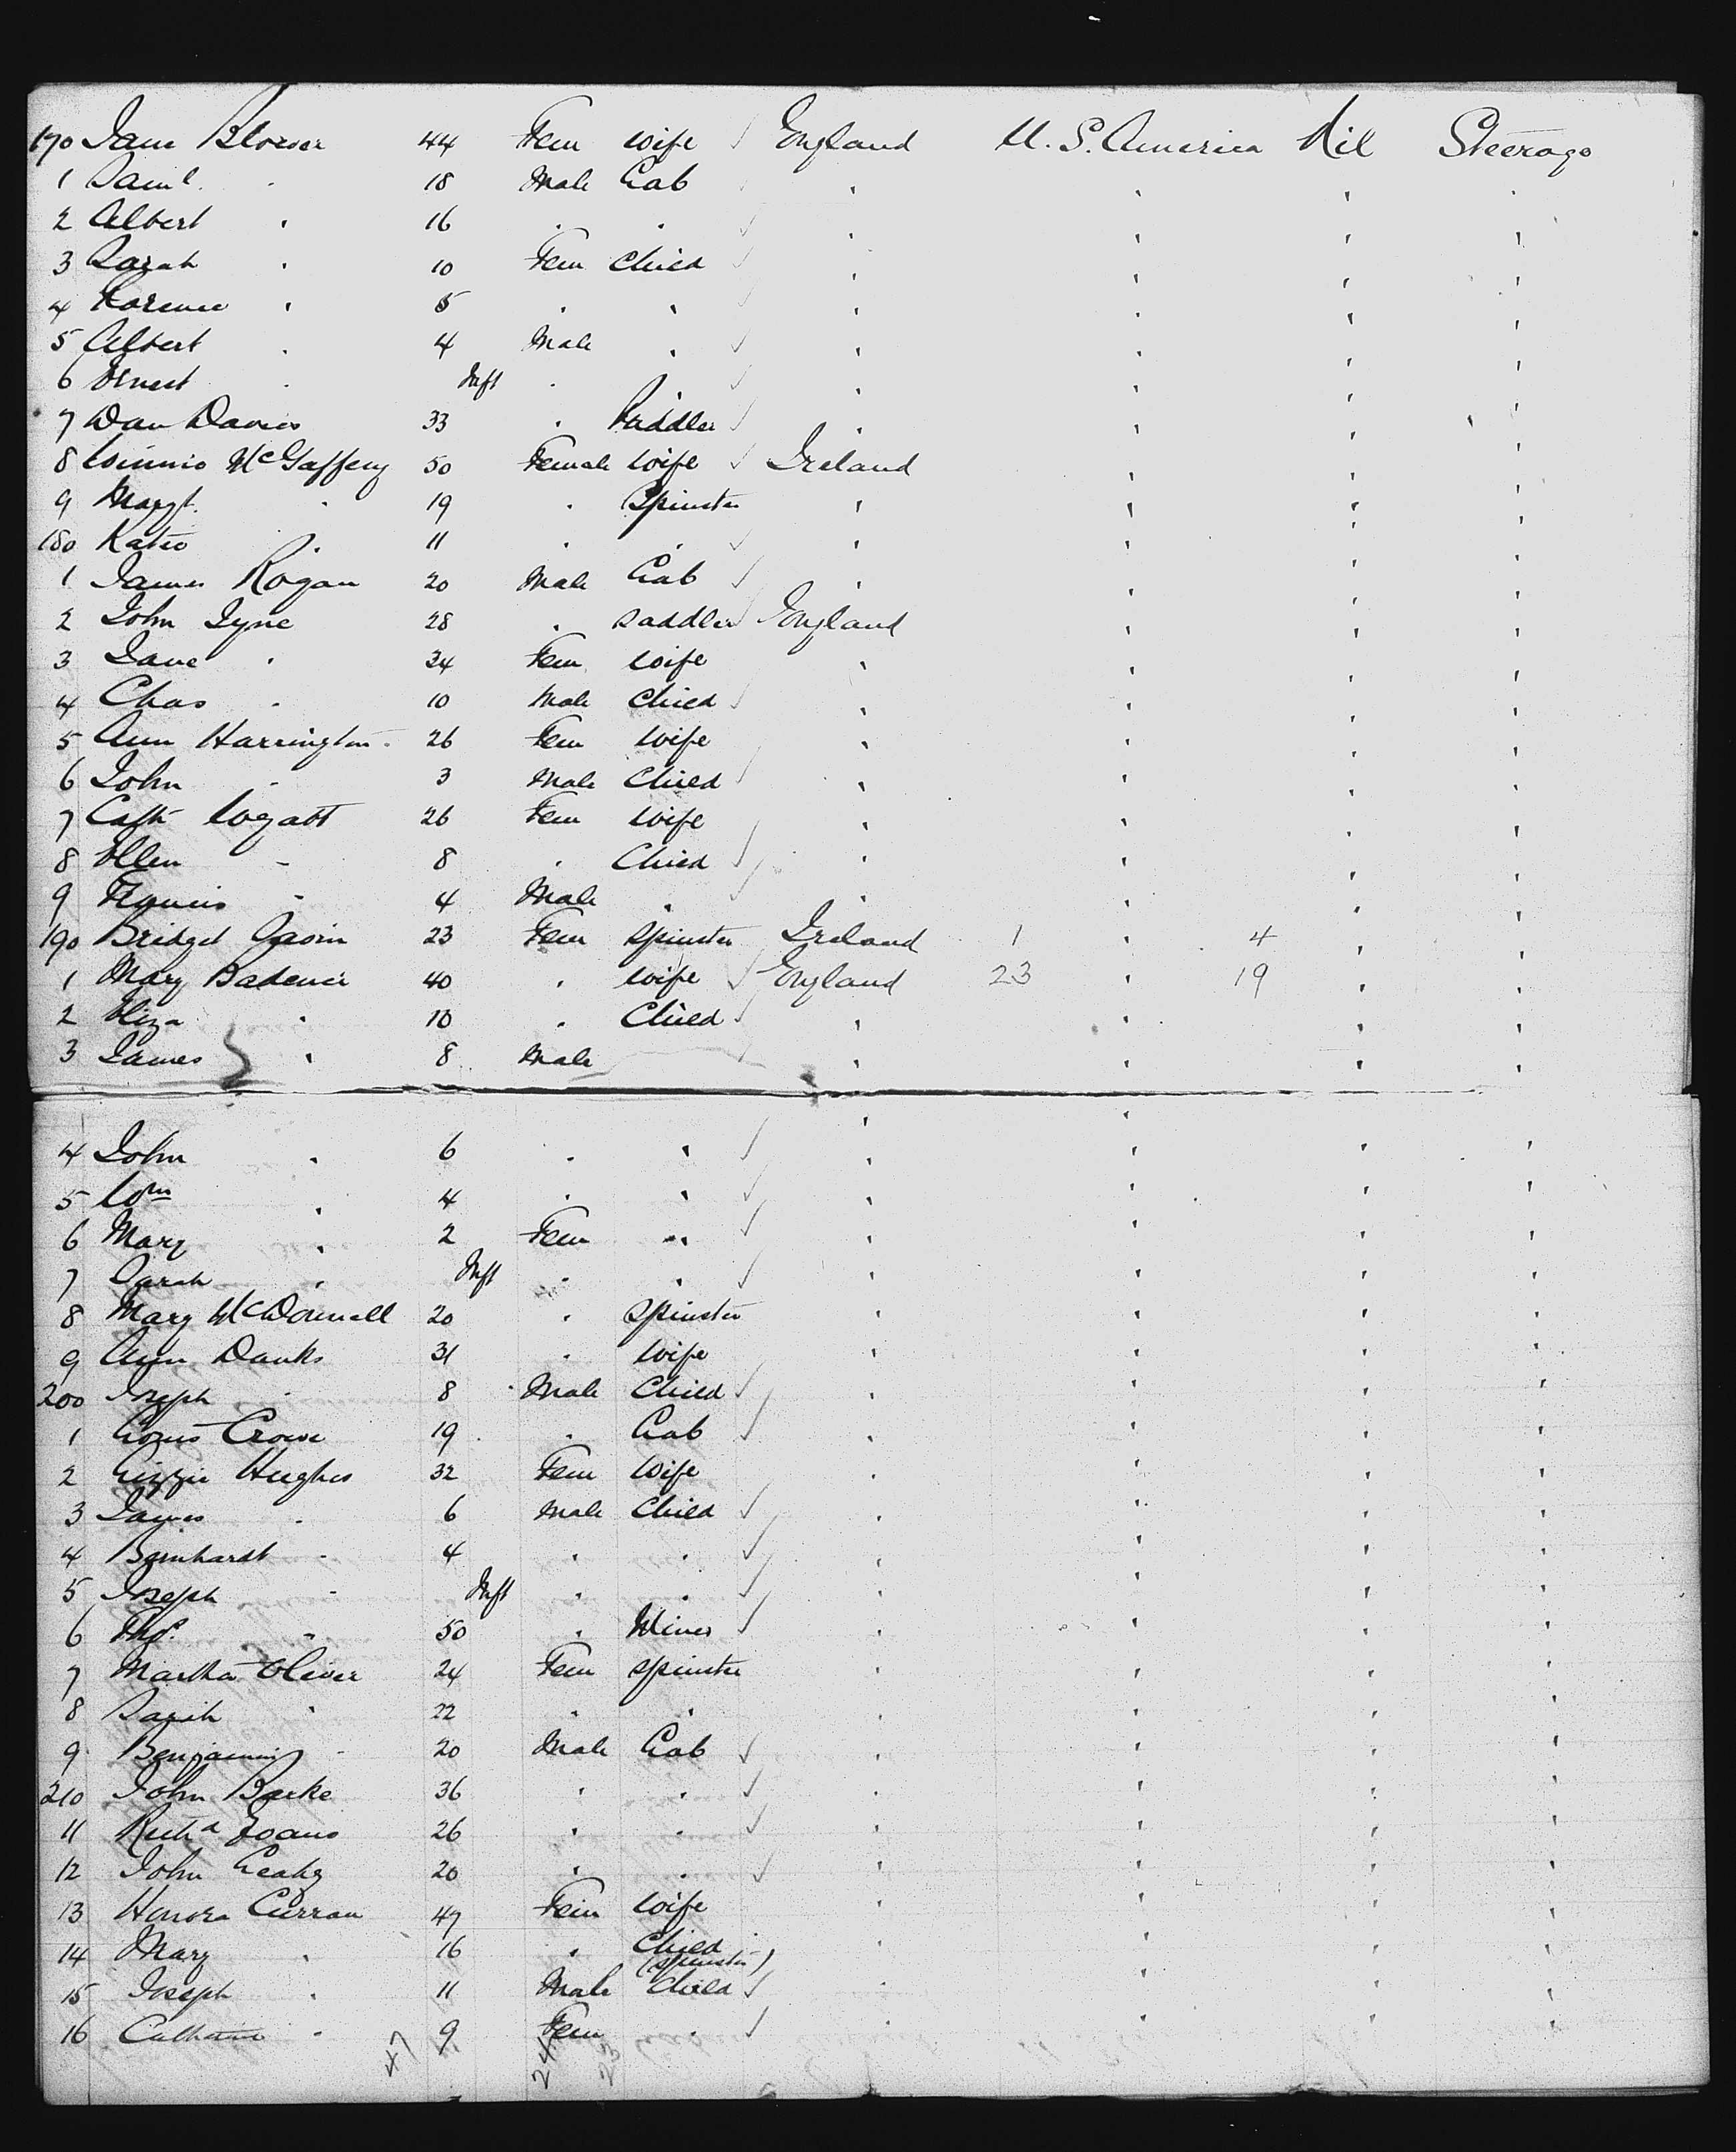 170 Jane Blower 44 Fem Wife ✓ England U. S. America Nil Steerage
1 Saml. " 18 Male Lab " " " "
2 Albert " 16 " " ✓ " " " "
3 Sarah " 10 Fem Child ✓ " " " "
4 " 5 " " ✓ " " " "
5 Albert " 4 Male " ✓ " " " "
6 Ernest " Inft " " ✓ " " " "
7 Dan Davies 33 " ✓ " " " "
8 Winnie McGaffery 50 Female Wife ✓ Ireland " " "
9 Margt. " 19 " Spinster " " " "
180 Katie " 11 " " ✓ " " " "
1 James Rogan 20 Male Lab ✓ " " " "
2 John Tyne 28 " Saddler ✓ England " " "
3 Jane " 34 Fem Wife " " " "
4 Chas " 10 Male Child ✓ " " " "
5 Ann Harrington 26 Fem Wife " " " "
6 John " 3 Male Child ✓ " " " "
7 Cath Wyatt 26 Fem Wife " " " "
8 Ellen " 8 " Child ✓ " " " "
9 Francis " 4 Male " ✓ " " " "
190 Bridget Gavin 23 Fem Spinster Ireland 1 " 4 " "
1 Mary 40 " Wife ✓ England 23 " 19 " "
2 Eliza " 10 " Child ✓ " " " "
3 James " 8 Male ✓ " " " "
4 John " 6 " " ✓ " " " "
5 Wm " 4 " " ✓ " " " "
6 Mary " 2 Fem " ✓ " " " "
7 Sarah " Inft " " ✓ " " " "
8 Mary McDonnell 20 " Spinster " " " "
9 Ann Danks 31 " Wife " " " "
200 Joseph " 8 Male Child ✓ " " " "
1 Louis Crowe 19 " Lab ✓ " " " "
2 Lizzie Hughes 32 Fem Wife " " " "
3 James " 6 Male Child ✓ " " " "
4 Bernhardt " 4 " " ✓ " " " "
5 Joseph " Inft " " ✓ " " " "
6 Thos. " 50 " Miner ✓ " " " "
7 Martha Oliver 24 Fem Spinster " " " "
8 Sarah " 22 " " " " " "
9 Benjamin " 20 Male Lab ✓ " " " "
210 John Burke 36 " " ✓ " " " "
11 Evans 26 " " ✓ " " " "
12 John Leahy 20 " " ✓ " " " "
13 Honora Curran 47 Fem Wife " " " "
14 Mary " 16 " Child (Spinster) " " " "
15 Joseph " 11 Male Child ✓ " " " "
16 " 9 Fem " ✓ " " " "
47 24 23